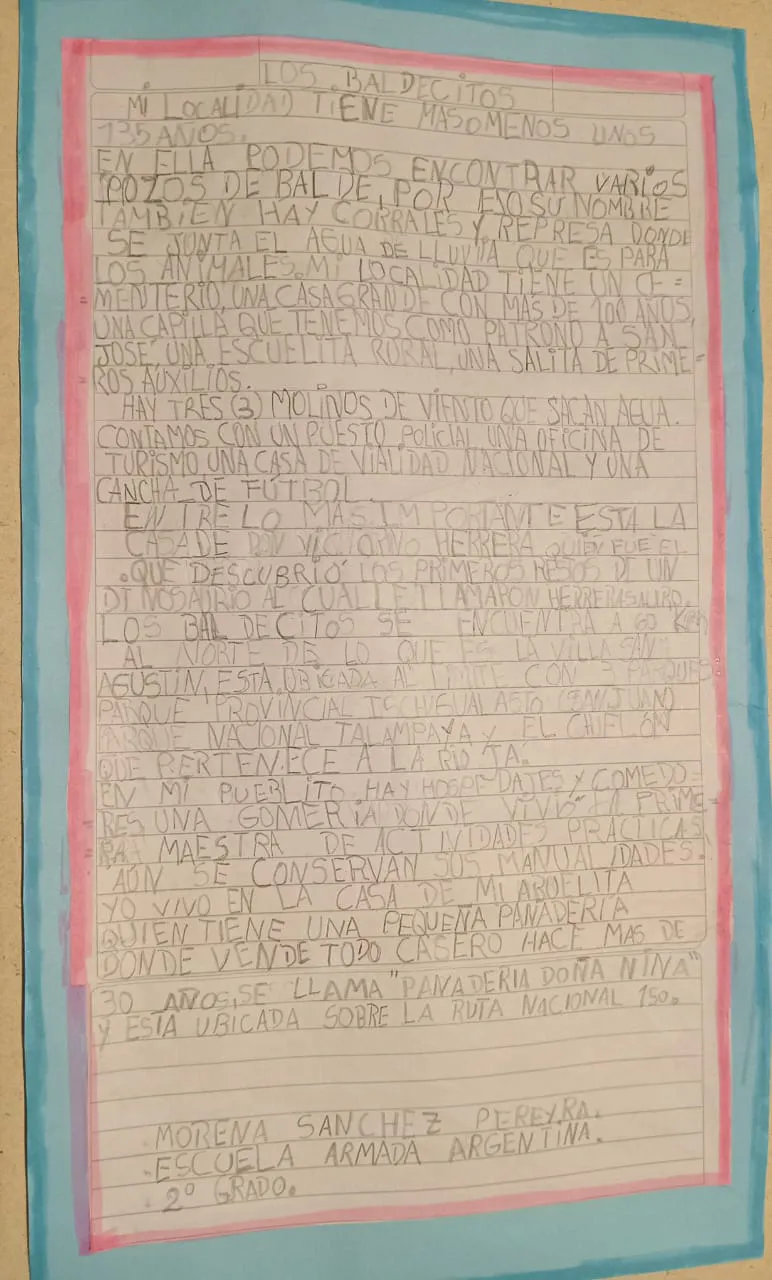 LOS BALDECITOS
MI LOCALIDAD TIENE MASOMENOS UNOS
135 AÑOS.
EN ELLA PODEMOS ENCONTRAR VARIOS
POZOS DE BALDE, POR ESO SU NOMBRE
TAMBIEN HAY CORRALES Y REPRESA DONDE
SE JUNTA EL AGUA DE LLUVIA QUE ES PARA
LOS ANIMALES. MI LOCALIDAD TIENE UN CE=
=MENTERIO, UNA CASA GRANDE CON MAS DE 100 AÑOS,
UNA CAPILLA QUE TENEMOS COMO PATRONO A SAN
JOSÉ, UNA ESCUELITA RURAL, UNA SALITA DE PRIME=
=ROS AUXILIOS.
HAY TRES (3) MOLINOS DE VIENTO QUE SACAN AGUA.
CONTAMOS CON UN PUESTO POLICIAL UNA OFICINA DE
TURISMO, UNA CASA DE VIALIDAD NACIONAL Y UNA
CANCHA DE FÚTBOL.
ENTRE LO MAS IMPORTANTE ESTA LA
CASA DE DON VICTORNO HERRERA QUIEN FUE EL
QUE DESCUBRIO LOS PRIMEROS RESOS DE UN
DINOSAURIO AL CUAL LE LLAMARON HERRERASAURO.
LOS BALDECITOS SE ENCUENTRA A 60 Km
AL NORTE DE LO QUE ES LA VILLA SAN
AGUSTIN, ESTA UBICADA AL LIMITE CON 3 PARQUES
PARQUE PROVINCIAL ISCHIGUALASTO (SAN JUAN)
PARQUE NACIONAL TALAMPAYA Y EL CHIFLÓN
QUE PERTENECE A LA RIOJA.
EN MI PUEBLITO HAY HOSPEDAJES Y COMEDO=
=RES UNA GOMERIA DONDE VIVIO LA PRIME=
=RA MAESTRA DE ACTIVIDADES PRÁCTICAS
AÚN SE CONSERVAN SUS MANUALIDADES.
YO VIVO EN LA CASA DE MI ABUELITA
QUIEN TIENE UNA PEQUEÑA PANADERIA
DONDE VENDE TODO CASERO HACE MAS DE
30 AÑOS, SE LLAMA "PANADERIA DOÑA NINA"
Y ESTA UBICADA SOBRE LA RUTA NACIONAL 150.
.MORENA SANCHEZ PEREYRA.
.ESCUELA ARMADA ARGENTINA.
.2º GRADO.